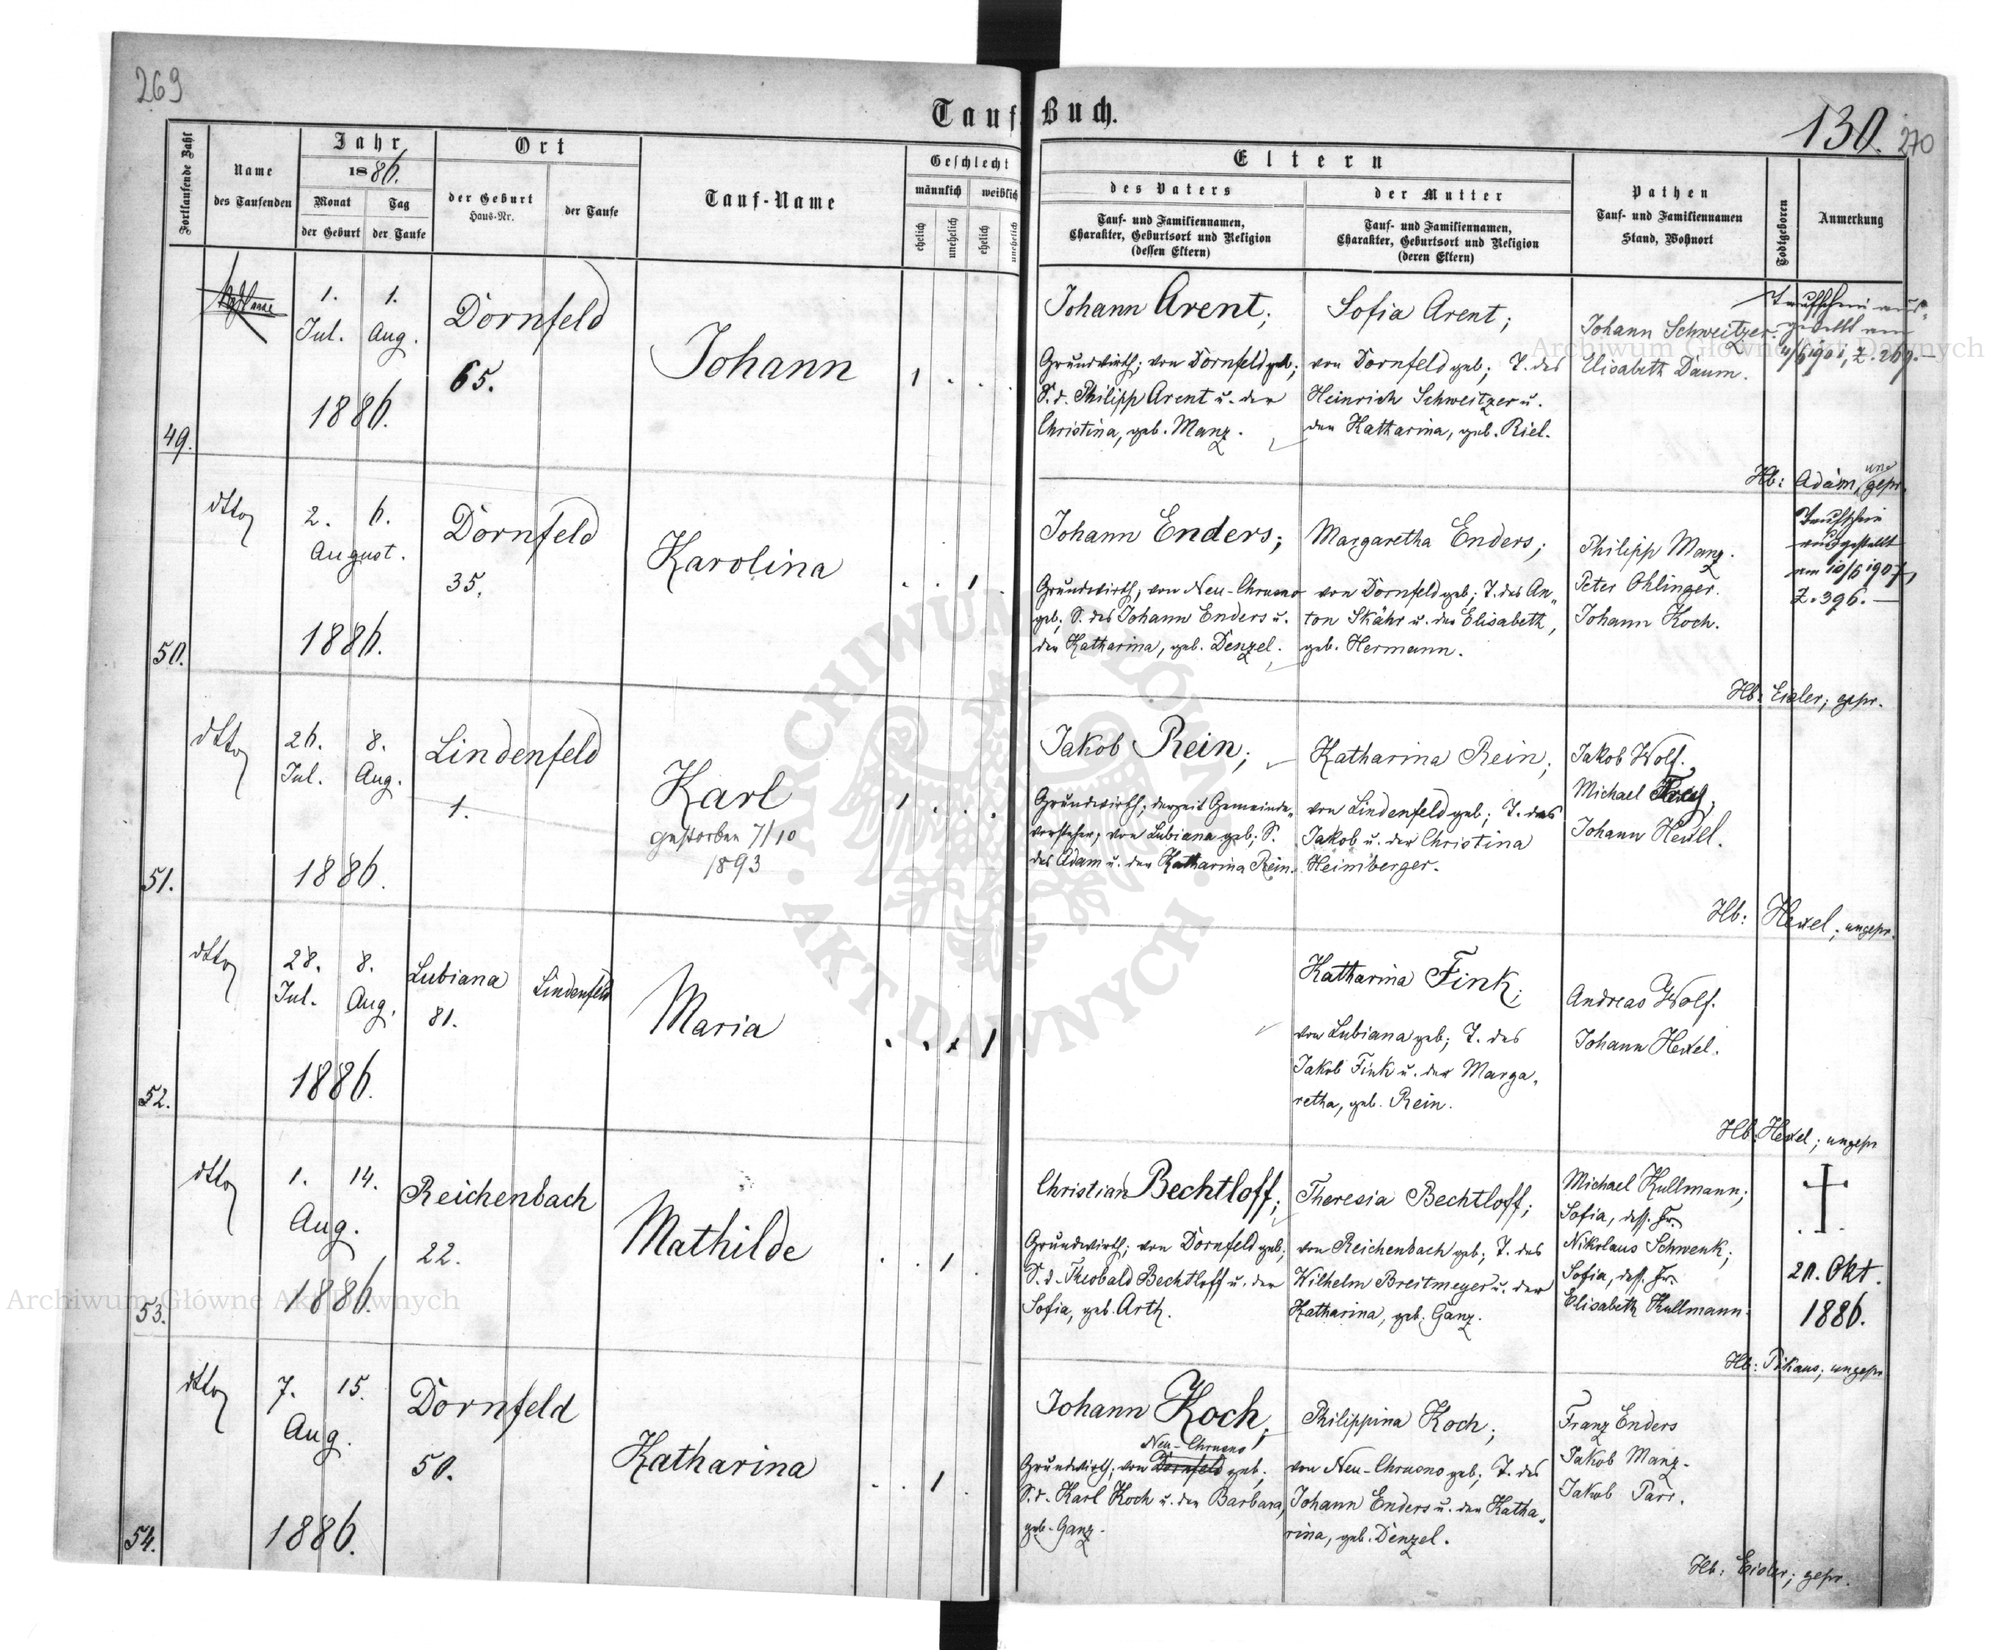 269
Tauf Buch.
130.
270
Fortlaufende Zahl
Name
des Taufenden
Jahr
1886.
Monat
Tag
der Geburt
der Taufe
Ort
der Geburt
Haus-Nr.
der Taufe
Tauf-Name
Geschlecht
männlich
weiblich
ehelich
unehelich
ehelich
unehelich
Eltern
des Vaters
Tauf- und Familiennamen,
Charakter, Geburtsort und Religion
(dessen Eltern)
der Mutter
Tauf- und Familiennamen,
Charakter, Geburtsort und Religion
(deren Eltern)
Pathen
Tauf- und Familiennamen
Stand, Wohnort
Todtgeboren
Anmerkung
49.
1. 1.
Jul. Aug.
1886.
Dornfeld
65.
Johann
1 . . .
Johann Arent;
Grundwirth; von Dornfeld geb;
S. d. Philipp Arent u. der
Christina, geb. Manz.
Sofia Arent;
von Dornfeld geb; T. des
Heinrich Schweitzer u.
der Katharina, geb. Riel.
Johann Schweitzer.
Elisabeth Daum.
Taufschein aus-
gestellt am
Z. 269.-
Hb: Adam, ungepr.
50.
dtto
2. 6.
August.
1886.
Dornfeld
35.
Karolina
. . 1 .
Johann Enders;
Grundwirth; von Neu-Chrusno
geb; S. des Johann Enders u.
der Katharina, geb. Denzel.
Margaretha Enders;
von Dornfeld geb; T. des An-
ton Skähr u. der Elisabeth,
geb. Hermann.
Philipp Manz.
Peter Ohlinger.
Johann Koch.
Taufschein
ausgestellt
am 10/6 1907,
Z. 396.-
Hb: Eisler; gepr.
51.
dtto
26. 8.
Jul. Aug.
1886.
Lindenfeld
1.
Karl
gestorben 7/10
1893
1 . . .
Jakob Rein;
Grundwirth; derzeit Gemeinde-
vorsteher; von Lubiana geb; S.
des Adam u. der Katharina Rein.
Katharina Rein;
von Lindenfeld geb; T. des
Jakob u. der Christina
Heimberger.
Jakob Wolf.
Michael
Johann Hexel.
Hb: Hexel; ungepr.
52.
dtto
28. 8.
Jul. Aug.
1886.
Lubiana
81.
Lindenfeld
Maria
. . x 1
Katharina Fink;
von Lubiana geb; T. des
Jakob Fink u. der Marga-
retha, geb. Rein.
Andreas Wolf.
Johann Hexel.
Hb: Hexel; ungepr
53.
dtto
1. 14.
Aug.
1886.
Reichenbach
22.
Mathilde
. . 1 .
Christian Bechtloff;
Grundwirth; von Dornfeld geb;
S. d. Theobald Bechtloff u. der
Sofia, geb. Arth.
Theresia Bechtloff;
von Reichenbach geb; T. des
Wilhelm Breitmeyer u. der
Katharina, geb. Ganz.
Michael Kullmann;
Sofia, dess. Fr.
Nikolaus Schwenk;
Sofia, dess. Fr.
Elisabeth Kullmann.
20. Okt.
1886.
Hb: Pikaus; ungepr
54.
dtto
7. 15.
Aug.
1886.
Dornfeld
50.
Katharina
. . 1 .
Johann Koch;
Neu-Chrusno
Grundwirth; von Dornfeld geb;
S. d. Karl Koch u. der Barbara,
geb. Ganz.
Philippina Koch;
von Neu-Chrusno geb; T. des
Johann Enders u. der Katha-
rina, geb. Denzel.
Franz Enders
Jakob Manz.
Jakob Parr.
Hb: Eisler; gepr.
Archiwum Główne Akt Dawnych
Archiwum Główne Akt Dawnych
ARCHIWUM GŁÓWNE AKT DAWNYCH